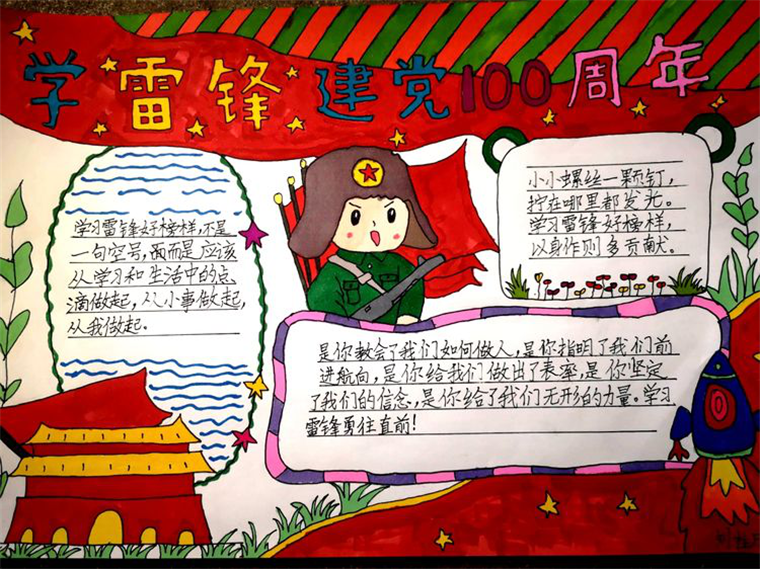 学雷锋建党100周年
学习雷锋好榜样,不是
一句空号,而而是应该
从学习和生活中的点
滴做起,从小事做起,
从我做起。
小小螺丝一颗钉,
拧在哪里都发光。
学习雷锋好榜样,
以身作则多贡献。
是你教会了我们如何做人,是你指明了我们前
进航向,是你给我们做出了表率,是你坚定
了我们的信念,是你给了我们无形的力量。学习
雷锋勇往直前!